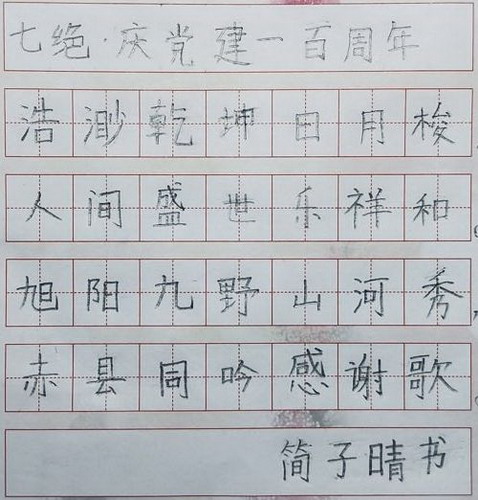 七绝·庆党建一百周年
浩渺乾坤日月梭
人间盛世乐祥和。
旭阳九野山河秀，
赤县同吟感谢歌。
简子晴书